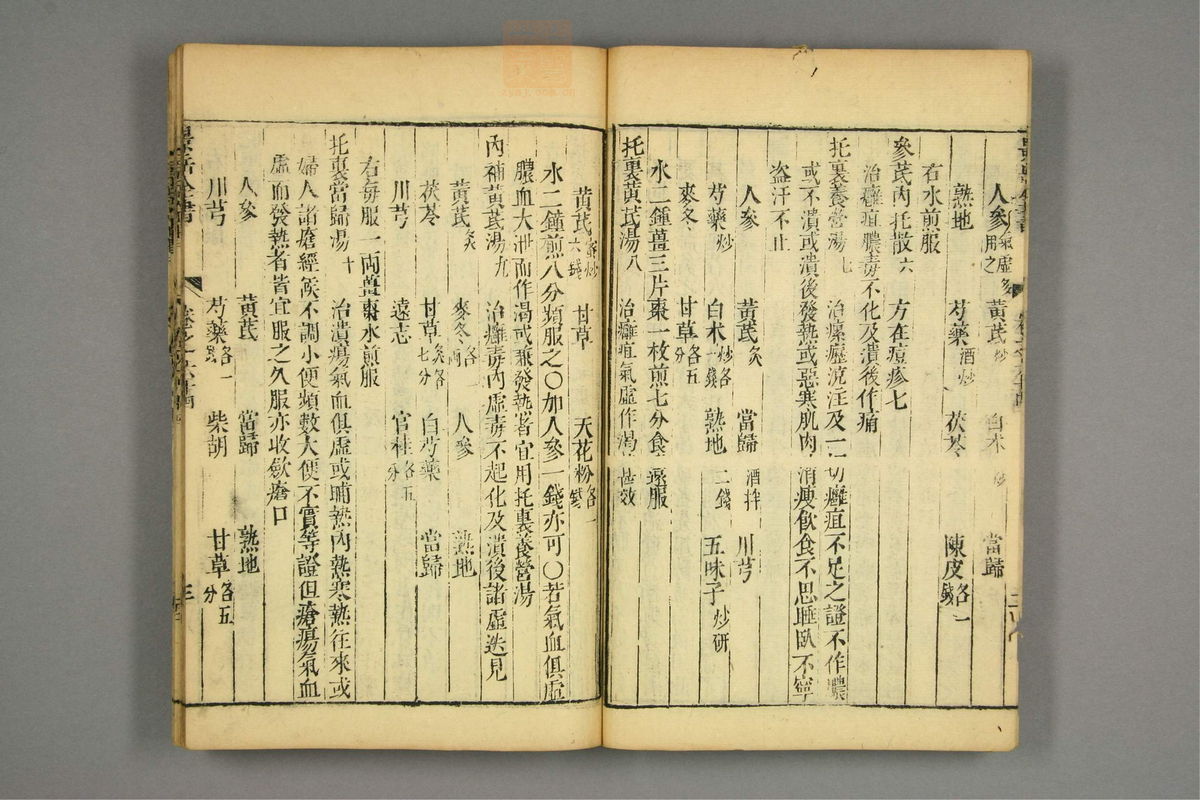 人參氣虛多用之 黃芪炒 白朮炒 當歸
熟地 芍藥酒炒 茯苓 陳皮各一錢
右水煎服
參芪內托散六 方在痘疹七
治癰疽膿毒不化及潰後作痛
托裏養營湯七 治瘰癧流注及一切癰疽不足之證不作膿
或不潰或潰後發熱或惡寒肌肉消瘦飲食不思睡臥不寧
盜汗不止
人參 黃芪炙 當歸酒拌 川芎
芍藥炒 白朮炒各一錢 熟地二錢 五味子炒研
麥冬 甘草各五分
水二鍾薑三片棗一枚煎七分食遠服
托裏黃芪湯八 治癰疽氣虛作渴甚效
黃芪蜜炒六錢 甘草 天花粉各一錢
水二鍾煎八分頻服之○加人參一錢亦可○若氣血俱虛
膿血大泄而作渴或兼發熱者宜用托裏養營湯
內補黃芪湯九 治癰毒內虛毒不起化及潰後諸虛迭見
黃芪炙 麥冬各一兩 人參 熟地
茯苓 甘草炙各七分 白芍藥 當歸
川芎 遠志 官桂各五分
右每服一兩薑棗水煎服
托裏當歸湯十 治潰瘍氣血俱虛或晡熱內熱寒熱往來或
婦人諸瘡經候不調小便頻數大便不實等證但瘡瘍氣血
虛而發熱者皆宜服之久服亦收斂瘡口
人參 黃芪 當歸 熟地
川芎 芍藥各一錢 柴胡 甘草各五分
景岳全書 卷之六十四